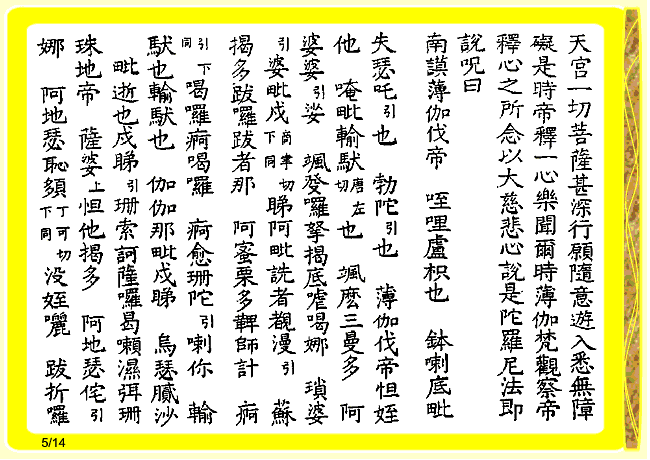 天宮一切菩薩甚深行願隨意遊入悉無障
礙是時帝釋一心樂聞爾時薄伽梵觀察帝
釋心之所念以大慈悲心說是陀羅尼法即
說呪曰
南謨薄伽伐帝 咥哩盧枳也 鉢喇底毗
失瑟吒引也 勃陀引也 薄伽伐帝怛姪
他 唵毗輸馱唐左切也 颯麼三曼多 阿
婆婆引娑 颯癹囉拏揭底虐喝娜 瑣婆
引婆毗戍尚聿切下同睇阿毗詵者覩漫引 蘇
揭多跋囉跋者那 阿蜜栗多鞞師計 痾
引下同喝囉痾喝囉 痾愈珊陀引喇你 輸
馱也輸馱也 伽伽那毗戍睇 烏瑟膩沙
毗逝也戍睇引珊索訶薩囉曷喇濕弭珊
珠地帝 薩婆上怛他揭多 阿地瑟侘引
娜 阿地瑟恥頞丁可切下同沒姪囇 跋折囉
5/14